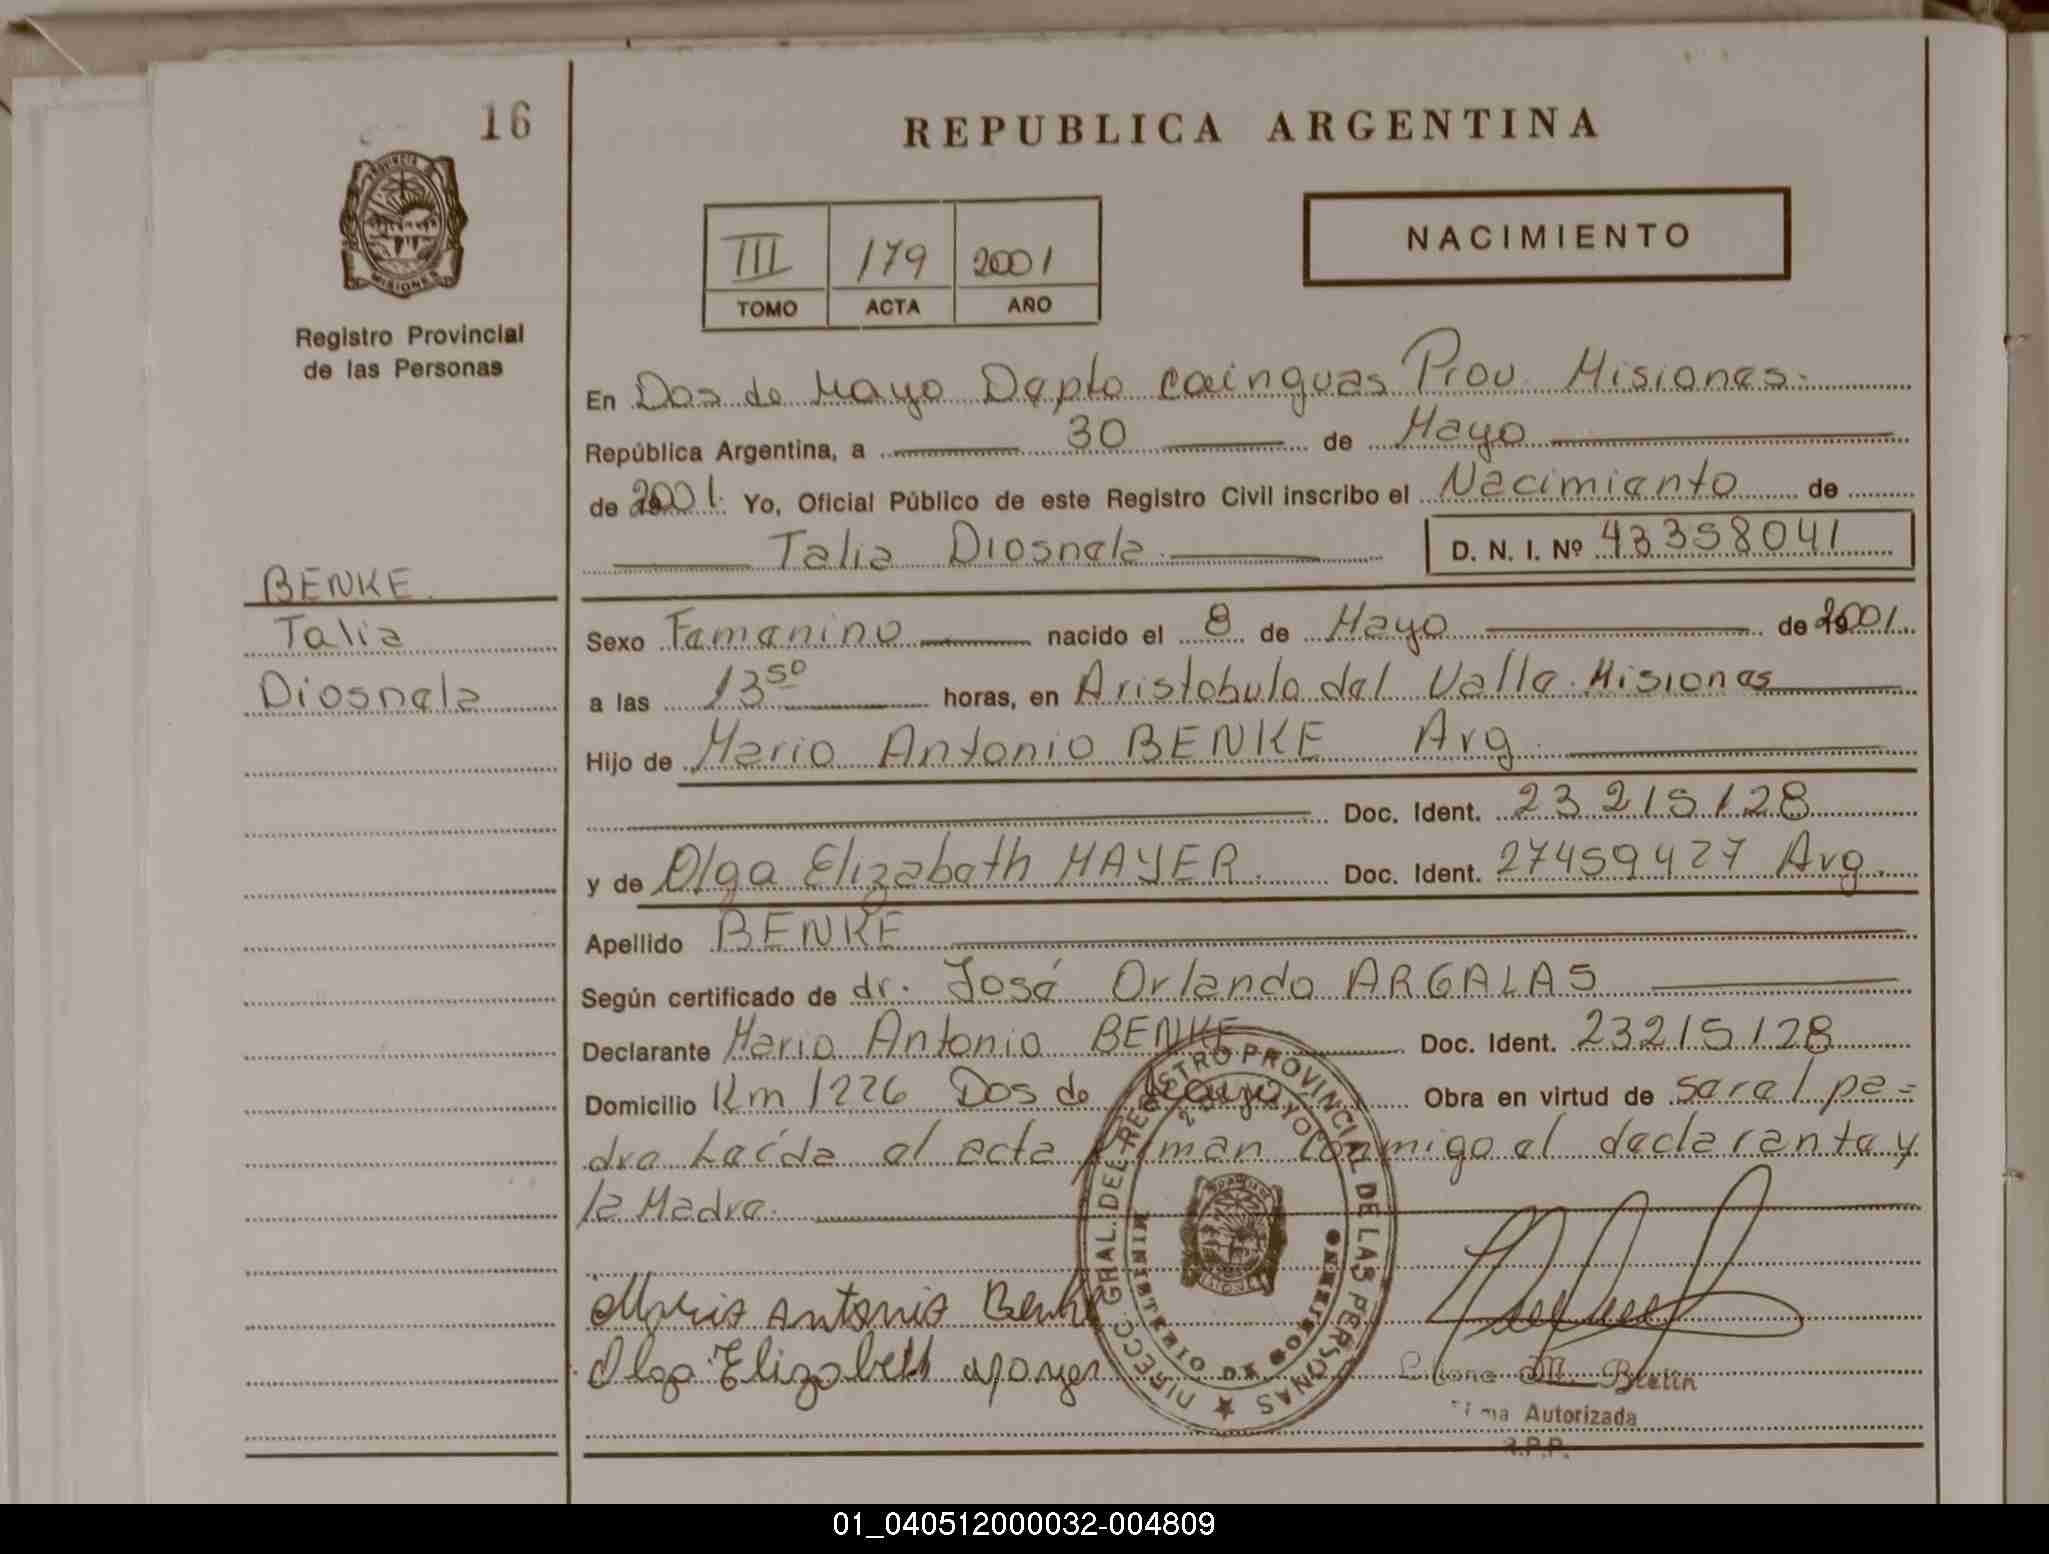 16
REPUBLICA ARGENTINA
PROVINCIA
MISIONES
Registro Provincial
de las Personas
III 179 2001
TOMO ACTA AÑO
NACIMIENTO
En Dos de Mayo Depto Cainguas Prov. Misiones.
República Argentina, a 30 de Mayo
de 2001. Yo, Oficial Público de este Registro Civil inscribo el Nacimiento de
Talia Diosnela D. N. I. Nº 43358041
BENKE
Talia
Diosnela
Sexo Femenino nacido el 8 de Mayo de 2001.
a las 13 50 horas, en Aristobulo del Valle. Misiones
Hijo de Mario Antonio BENKE Arg.
Doc. Ident. 23 215 128
y de Olga Elizabeth MAYER. Doc. Ident. 27459427 Arg.
Apellido BENKE
Según certificado de dr. José Orlando ARGALAS
Declarante Mario Antonio BENKE Doc. Ident. 23215128
Domicilio Km 1226 Dos de Mayo Obra en virtud de ser el pa=
dre Leída el acta firman conmigo el declarante y
la Madre.
DIRECC. GRAL. DEL REGISTRO PROVINCIAL DE LAS PERSONAS
MINISTERIO DE GOBIERNO
2 DE MAYO
Mario Antonio Benke
Olga Elizabeth
Liliana M.
Firma Autorizada
R.P.P.
01_040512000032-004809